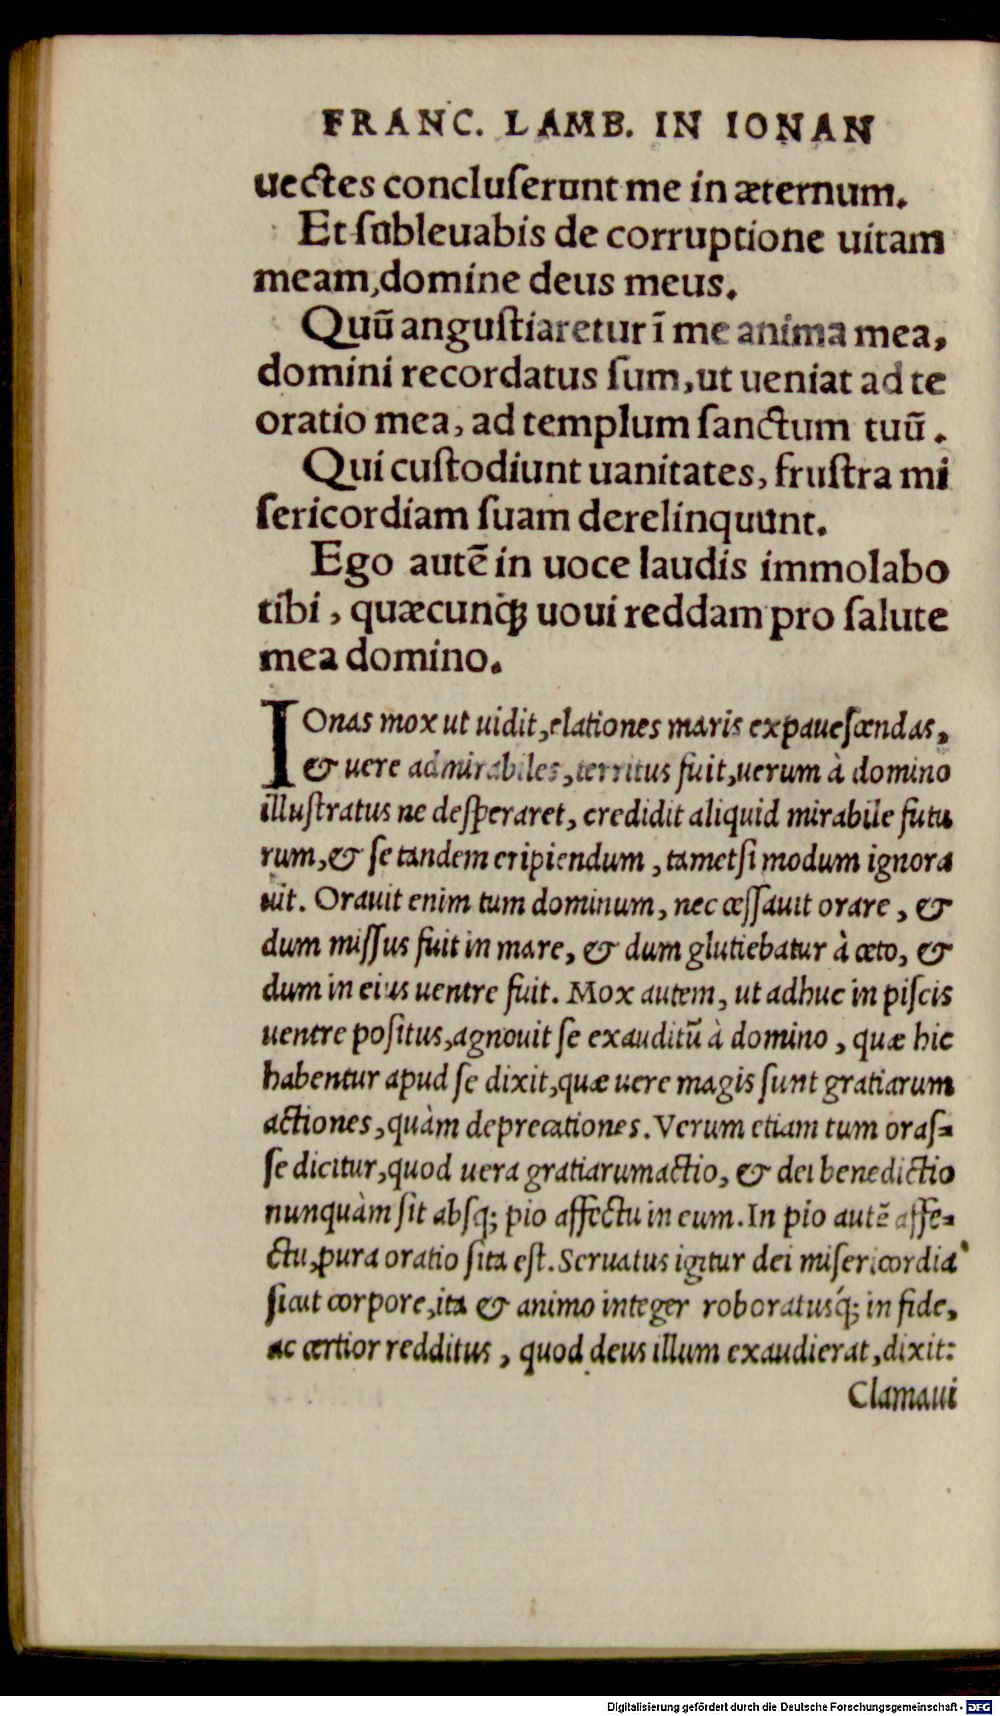 FRANC. LAMB. IN IONAN
uectes concluſerunt me in æternum.
Et ſubleuabis de corruptione uitam
meam,domine deus meus.
Quū anguſtiaretur ī me anima mea,
domini recordatus ſum,ut ueniat ad te
oratio mea, ad templum ſanctum tuū.
Qui cuſtodiunt uanitates, fruſtra mi
ſericordiam ſuam derelinquunt.
Ego autē in uoce laudis immolabo
tibi, quæcunq; uoui reddam pro ſalute
mea domino.
IOnas mox ut uidit,elationes maris expaueſcendas,
& uere admirabiles,territus fuit,uerum à domino
illuſtratus ne deſperaret, credidit aliquid mirabile futu
rum,& ſe tandem eripiendum, tametſi modum ignora
uit. Orauit enim tum dominum, nec ceſſauit orare, &
dum miſſus fuit in mare, & dum glutiebatur à ceto, &
dum in eius uentre fuit. Mox autem, ut adhuc in piſcis
uentre poſitus,agnouit ſe exauditū à domino, quæ hic
habentur apud ſe dixit,quæ uere magis ſunt gratiarum
actiones,quàm deprecationes. Verum etiam tum oraſ-
ſe dicitur,quod uera gratiarumactio, & dei benedictio
nunquàm ſit abſq; pio affectu in eum. In pio autē affe-
ctu,pura oratio ſita eſt. Seruatus igitur dei miſericordia
ſicut corpore,ita & animo integer roboratusq́; in fide,
ac certior redditus, quod deus illum exaudierat,dixit:
Clamaui
Digitalisierung gefördert durch die Deutsche Forschungsgemeinschaft - DFG